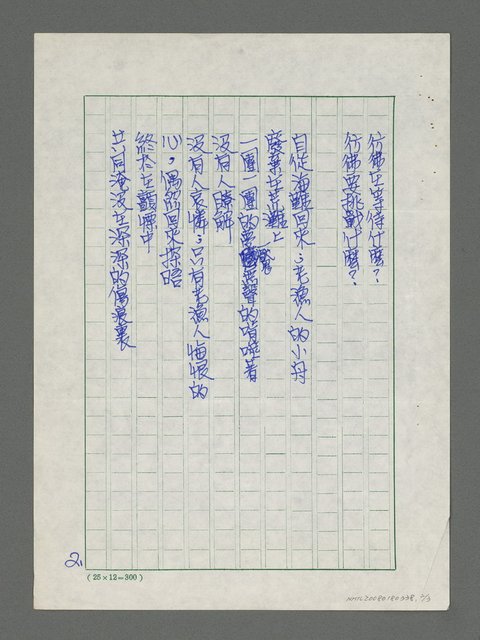 彷彿在等待什麼?
彷彿要挑戰什麼?
自從海難回來,老漁人的小舟
廢棄在荒灘上
一團一團的無聲的喧嘩着
没有人瞭解
没有人哀憐,只有老漁人悔恨的
心,偶然回來探晤
終於在顫慄中
共同淹没在深深的傷浪裏
2.
(25×12=300)
NMTL20080180338, 2/3